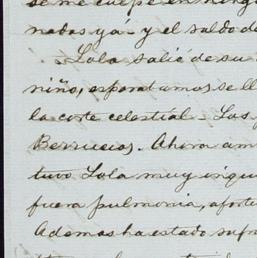 se me culpe en ning
nadas ya - y el saldo d
- Lola salió de su
niño, esperábamos se ll
la corte celestial - Las
Berruecos. Ahora am
tuvo Lola muy inqui
fuera pulmonia, afort
Ademas ha estado sufr